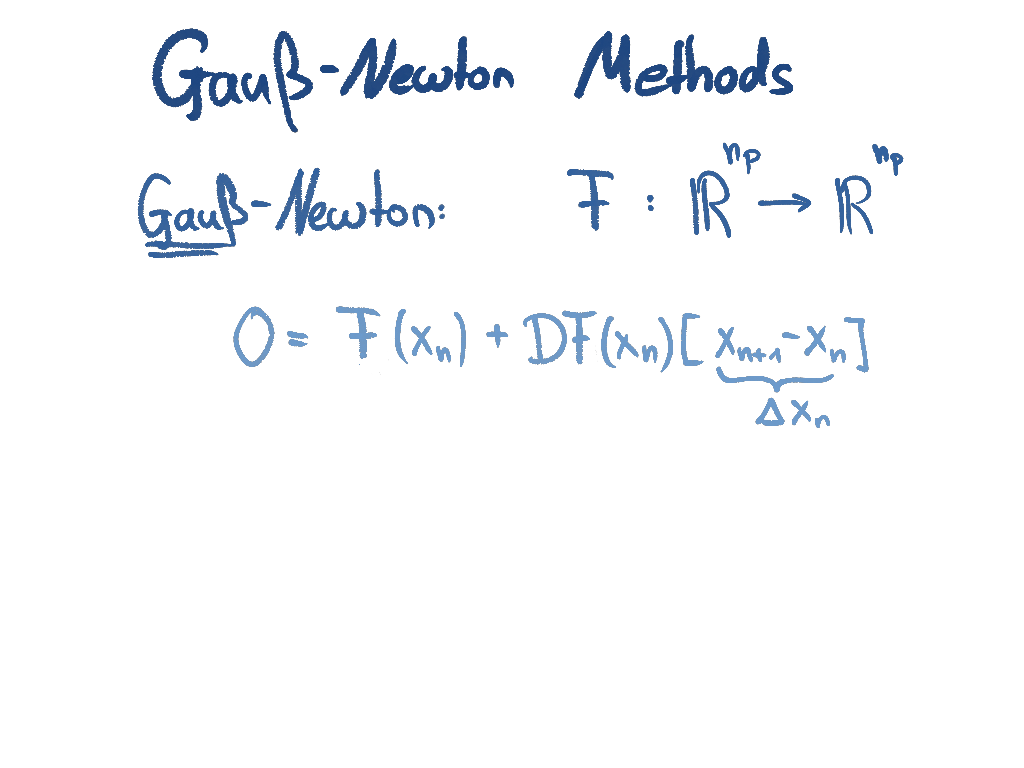 Gauß-Newton Methods
Gauß-Newton: F : ℝ^{n_p} → ℝ^{n_p}
0 = F(x_n) + DF(x_n)[x_{n+1} - x_n]
Δx_n